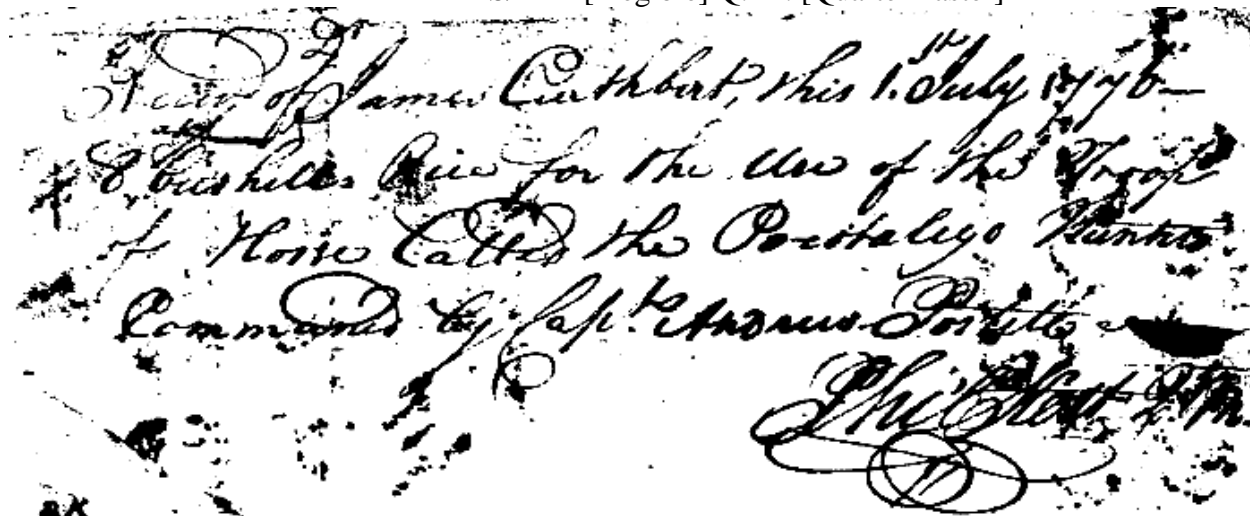 of Dr James Cuthbert, this 1.th July 1776—
8 bushells Rice for the Use of the Troop
of Horse Called the Pocotaligo Hunters.
Command by Capt. Andrew Postell
Phil Hext Q. M.